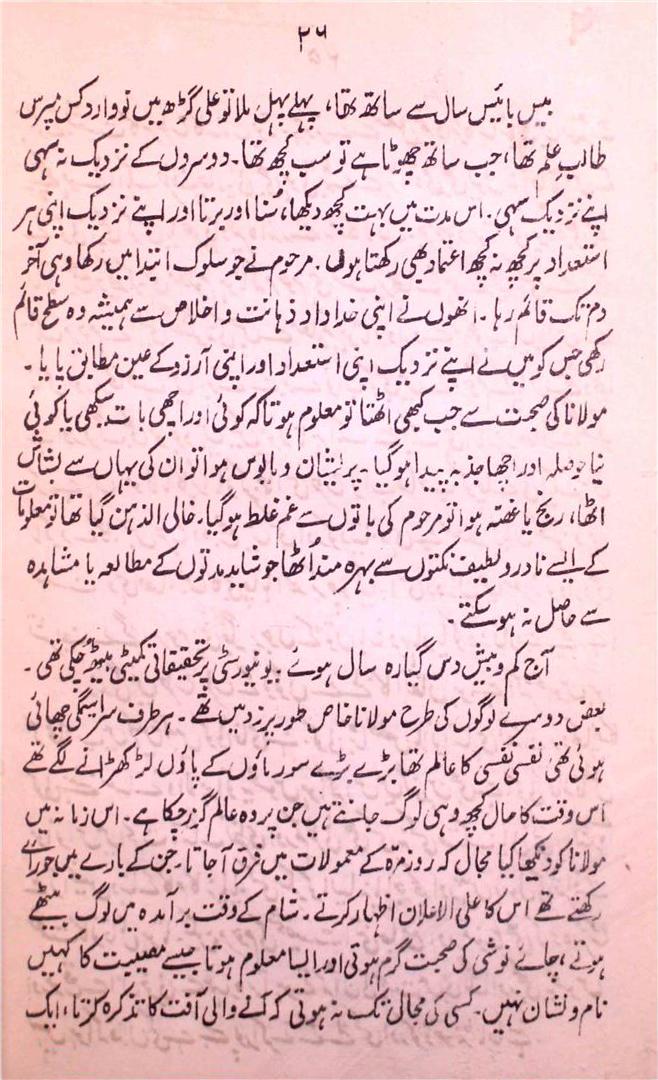 ۲۶
بیس بائیس سال سے ساتھ تھا، پہلے پہل ملا تو علی گڑھ میں نووارد کس مپرس
طالب علم تھا، جب ساتھ چھوٹا ہے تو سب کچھ تھا۔ دوسروں کے نزدیک نہ سہی
اپنے نزدیک سہی۔ اس مدت میں بہت کچھ دیکھا، سُنا اور برتا اور اپنے نزدیک اپنی ہر
استعداد پر کچھ نہ کچھ اعتماد بھی رکھتا ہوں۔ مرحوم نے جو سلوک ابتدا میں رکھا وہی آخر
دم تک قائم رہا۔ انھوں نے اپنی خداداد ذہانت و اخلاص سے ہمیشہ وہ سطح قائم
رکھی جس کو میں نے اپنے نزدیک اپنی استعداد اور اپنی آرزو کے عین مطابق پایا۔
مولانا کی صحبت سے جب کبھی اٹھتا تو معلوم ہوتا کہ کوئی اور اچھی بات سیکھی یا کوئی
نیا حوصلہ اور اچھا جذبہ پیدا ہو گیا۔ پریشان و مایوس ہوا تو ان کی یہاں سے بشاش
اٹھا، رنج یا غصّہ ہوا تو مرحوم کی باتوں سے غم غلط ہو گیا۔ خالی الذہن گیا تھا تو معلومات
کے ایسے نادر و لطیف نکتوں سے بہرہ مند اُٹھا جو شاید مدتوں کے مطالعہ یا مشاہدہ
سے حاصل نہ ہو سکتے۔
آج کم و بیش دس گیارہ سال ہوئے۔ یونیورسٹی پر تحقیقاتی کمیٹی بیٹھ چکی تھی۔
بعض دوسرے لوگوں کی طرح مولانا خاص طور پر زد میں تھے۔ ہر طرف سراسیمگی چھائی
ہوئی تھی نفسی نفسی کا عالم تھا بڑے بڑے سورماؤں کے پاؤں لڑکھڑانے لگے تھے
اس وقت کا حال کچھ وہی لوگ جانتے ہیں جن پر وہ عالم گزر چکا ہے۔ اس زمانہ میں
مولانا کو دیکھا کیا مجال کہ روزمرّہ کے معمولات میں فرق آ جاتا۔ جن کے بارے میں جو رائے
رکھتے تھے اس کا علی الاعلان اظہار کرتے۔ شام کے وقت برآمدہ میں لوگ بیٹھے
ہوتے، چائے نوشی کی صحبت گرم ہوتی اور ایسا معلوم ہوتا جیسے مصیبت کا کہیں
نام و نشان نہیں۔ کسی کی مجال تک نہ ہوتی کہ آنے والی آفت کا تذکرہ کرتا، ایک